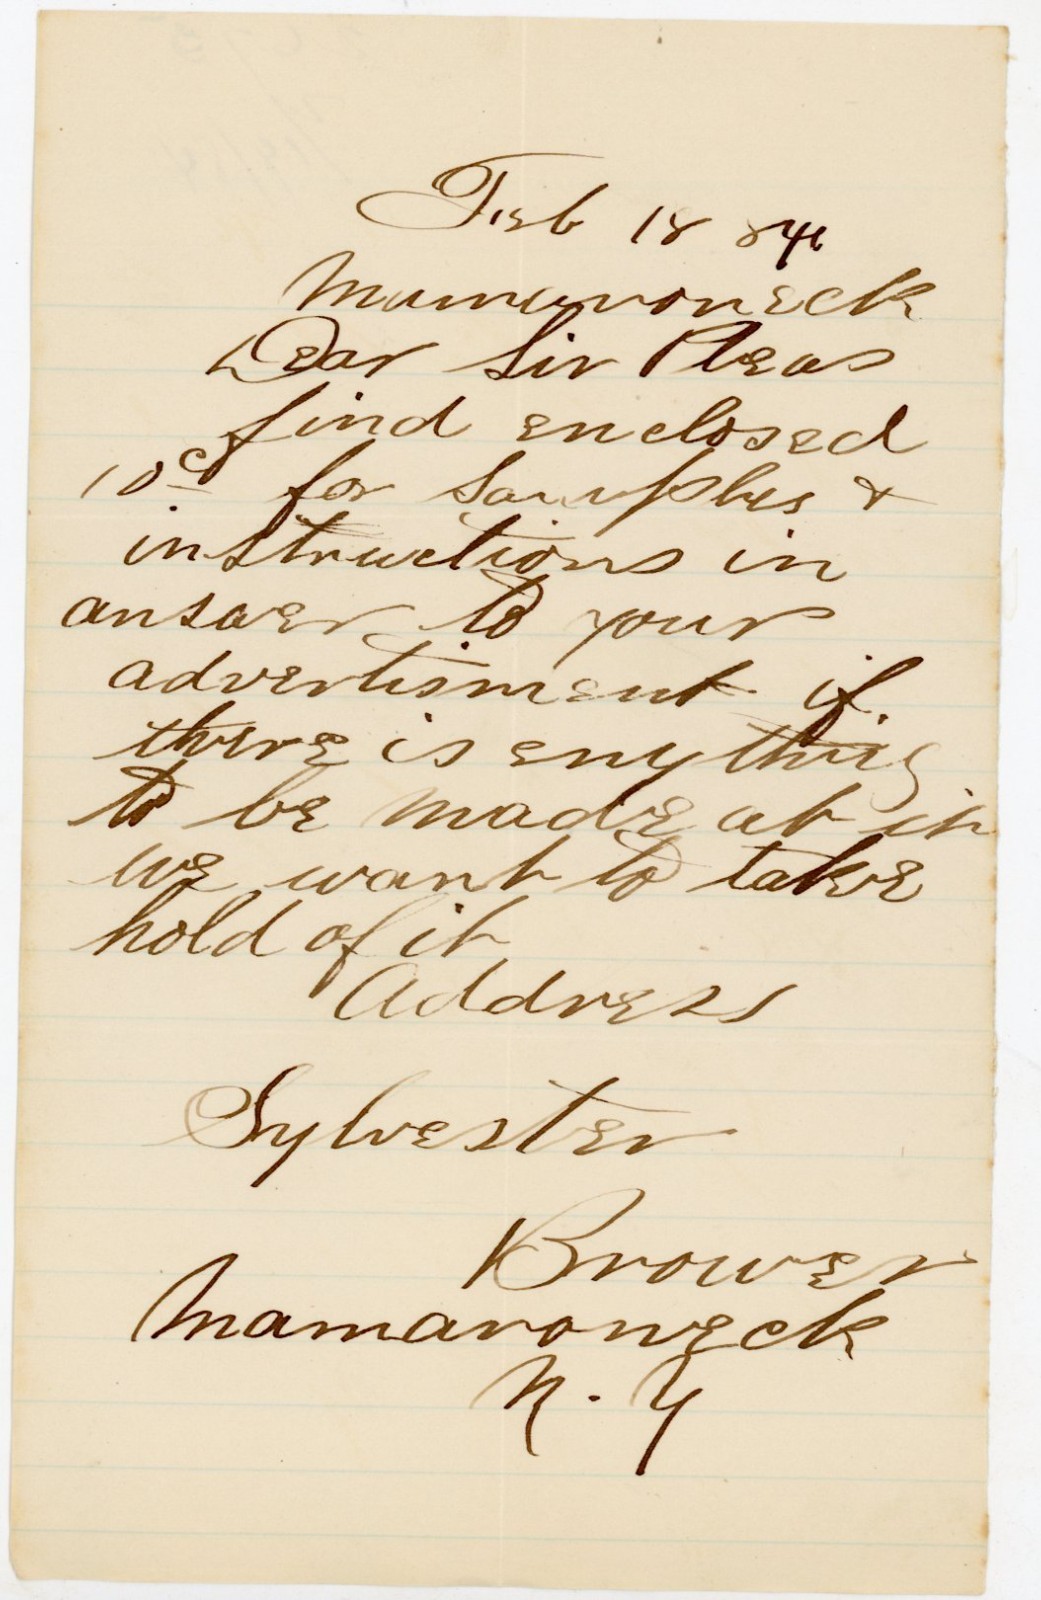 Feb 18 84
Mamaroneck
Dear Sir Pleas
find enclosed
10c for samples &
instructions in
answer to your
advertisment if
there is enything
to be made at it
we want to take
hold of it
Address
Sylvester
Brower
Mamaroneck
N. Y